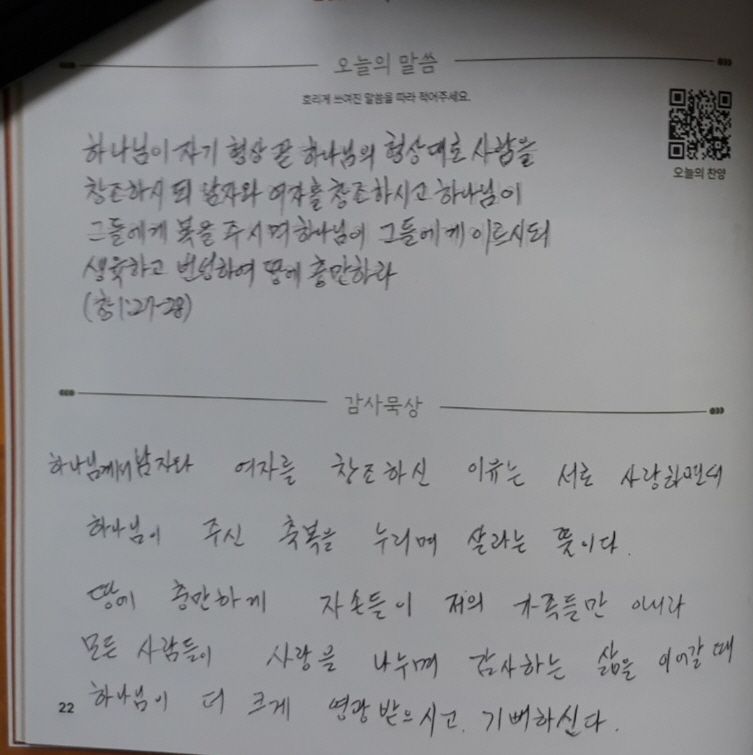 오늘의 말씀
흐리게 쓰여진 말씀을 따라 적어주세요.
오늘의 찬양
하나님이 자기 형상 곧 하나님의 형상대로 사람을
창조하시되 남자와 여자를 창조하시고 하나님이
그들에게 복을 주시며 하나님이 그들에게 이르시되
생육하고 번성하여 땅에 충만하라
(창1:27-28)
감사묵상
하나님께서 남자와 여자를 창조하신 이유는 서로 사랑하면서
하나님이 주신 축복을 누리며 살라는 뜻이다.
땅에 충만하게 자손들이 저의 가족들만 아니라
모든 사람들이 사랑을 나누며 감사하는 삶을 이어갈 때
하나님이 더 크게 영광 받으시고. 기뻐하신다.
22